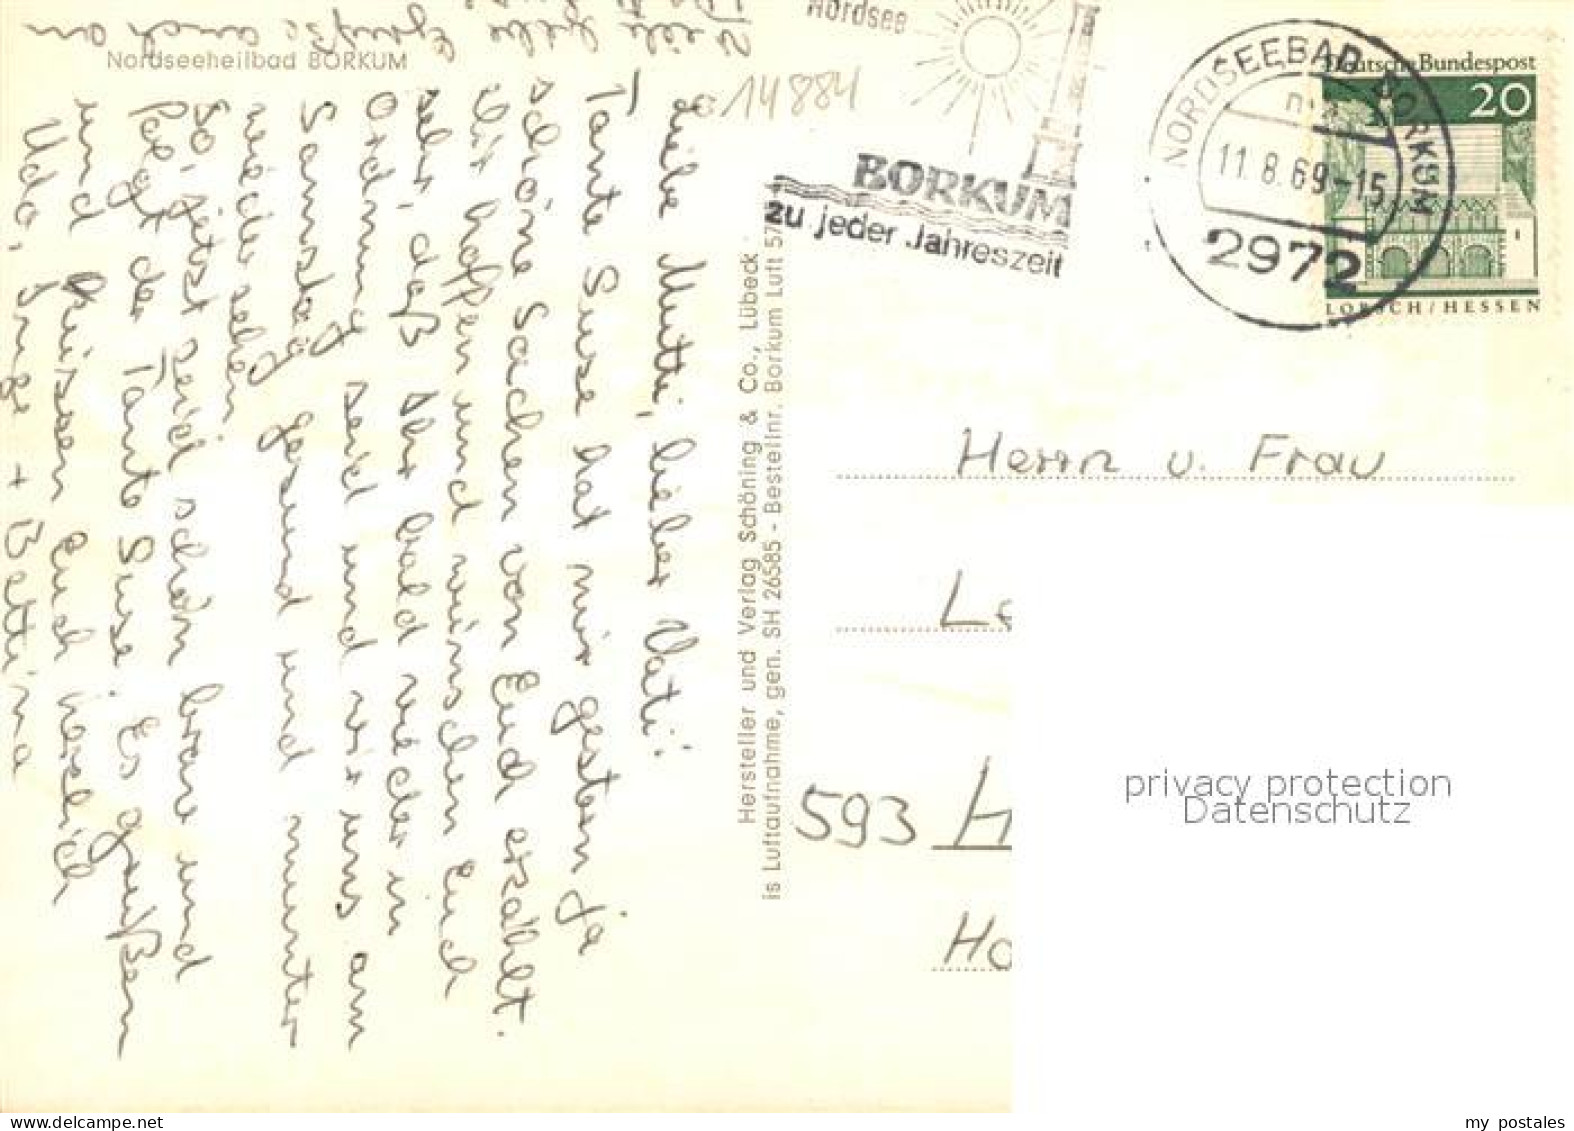 Nordseeheilbad BORKUM
14884
Nordsee
BORKUM
zu jeder Jahreszeit
NORDSEEBAD BORKUM
11.8.69-15
2972
Deutsche Bundespost
20
LORSCH/HESSEN
Liebe Mutti, lieber Vati!
Tante Suse hat mir gestern ja
schöne Sachen von Euch erzählt.
Wir hoffen und wünschen Euch
sehr, daß Ihr bald wieder in
Ordnung seid und wir uns am
Samstag gesund und munter
wieder sehen
So, jetzt seid schön brav und
folgt der Tante Suse. Es grüßen
und küssen Euch herzlich
Udo, Inge + Bettina
Viele liebe Grüße auch an
Hersteller und Verlag Schöning & Co., Lübeck
is Luftaufnahme, gen. SH 26585 - Bestellnr. Borkum Luft 57
Herrn u. Frau
Le
593 H
Ho
privacy protection
Datenschutz
my postales